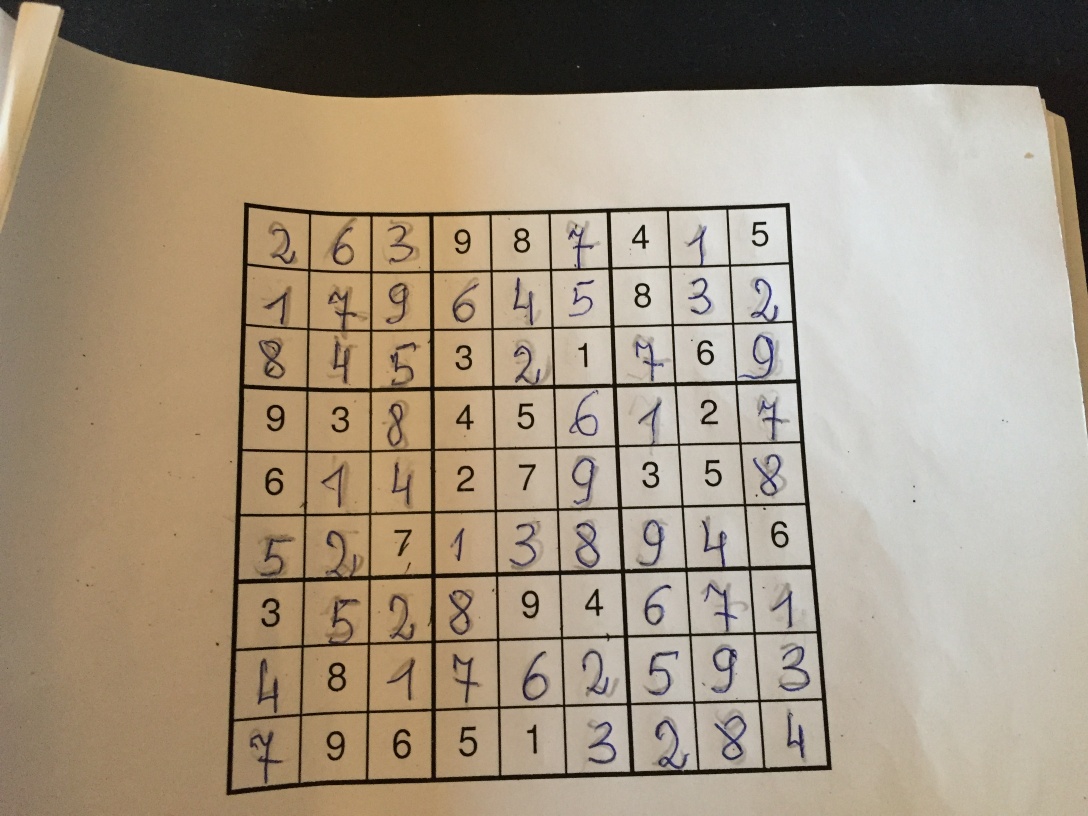 2 6 3 9 8 7 4 1 5
1 7 9 6 4 5 8 3 2
8 4 5 3 2 1 7 6 9
9 3 8 4 5 6 1 2 7
6 1 4 2 7 9 3 5 8
5 2 7 1 3 8 9 4 6
3 5 2 8 9 4 6 7 1
4 8 1 7 6 2 5 9 3
7 9 6 5 1 3 2 8 4